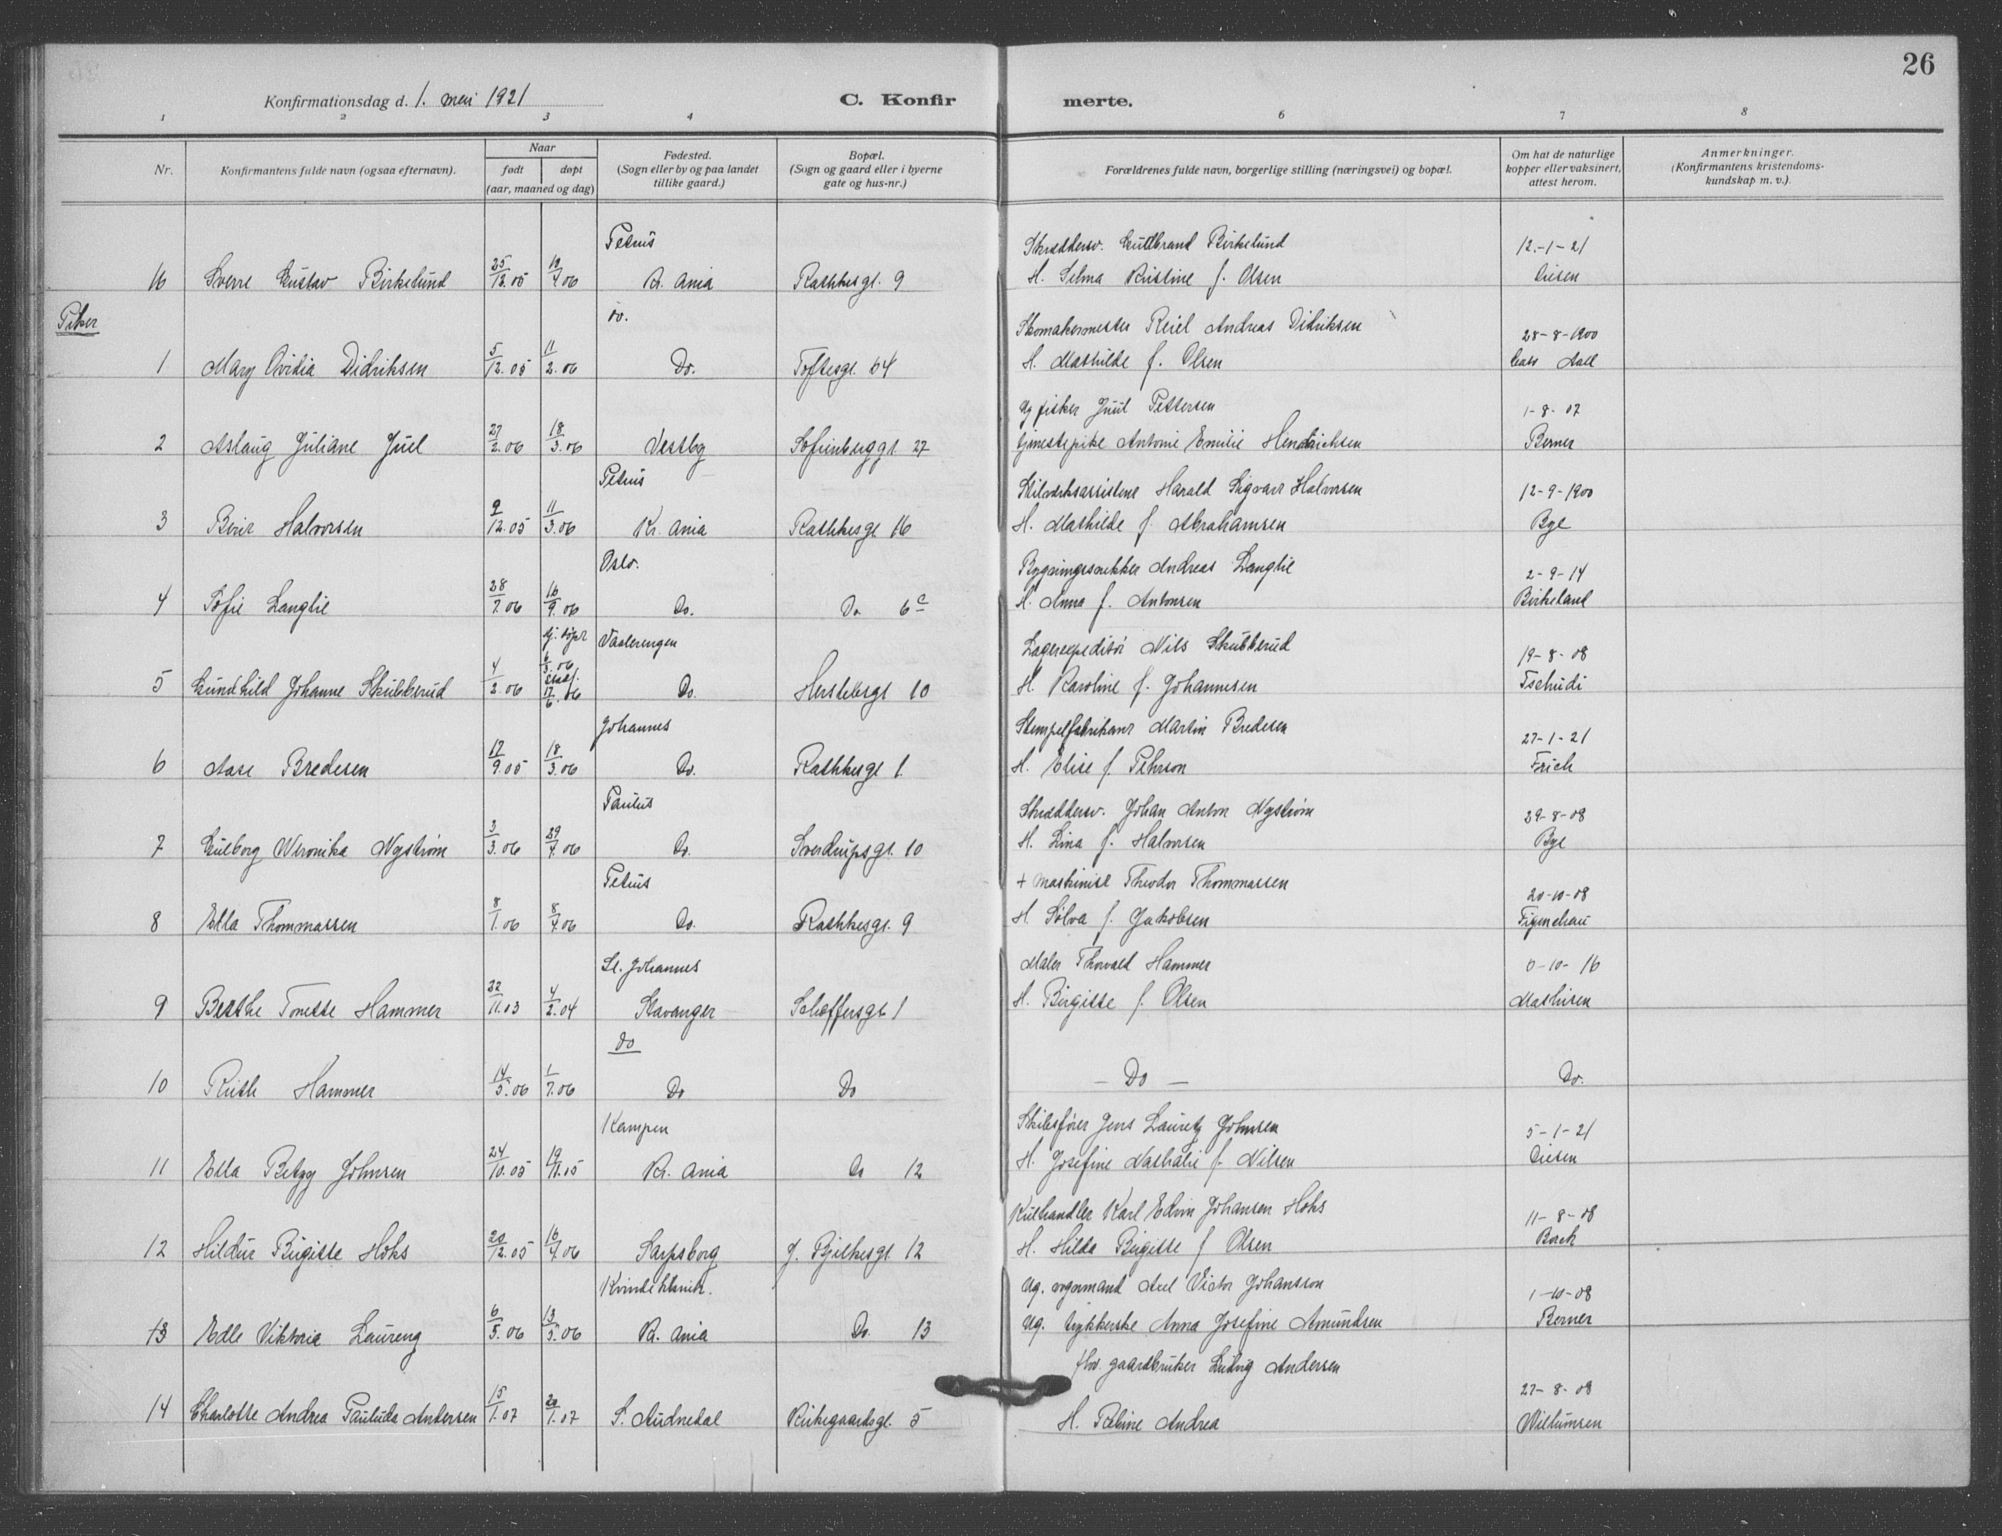 26
Konfirmationsdag d. 1. mai 1921
C. Konfirmerte.
1 2 3 4 6 7 8
Nr.
Konfirmantens fulde navn (ogsaa efternavn).
Naar
født døpt
(aar, maaned og dag)
Fødested.
(Sogn eller by og paa landet
tillike gaard.)
Bopæl.
(Sogn og gaard eller i byerne
gate og hus-nr.)
Forældrenes fulde navn, borgerlige stilling (næringsvei) og bopæl.
Om hat de naturlige
kopper eller vaksinert,
attest herom.
Anmerkninger.
(Konfirmantens kristendoms-
kundskap m. v.).
Petrus Skræddersv. Gulbrand Birkelund 12-1-21
16 Sverre Gustav Birkelund 25/12.05 19/4.06 Kr. ania Rathkesgt. 9 H. Selma Kristine f. Olsen Diesen
Piker
do. Skomakermester Reiel Andreas Didriksen 28-8-1900
1 Mary Ovidia Didriksen 5/12.05 11/2.06 Do. Toftesgt. 64 H. Mathilde f. Olsen Cato Aall
Ug fisker Juul Pettersen 1-8-07
2 Aslaug Juliane Juel 27/2.06 18/3.06 Vestby Sofienberggt. 27 tjenestepike Antonie Emilie Hendrichsen Berner
Petrus Harald Sigvart Halvorsen 12-9-1900
3 Halvorsen 9/12.05 11/3.06 Kr. ania Rathkesgt 16 H. Mathilde f. Abrahamsen Bye
Oslo. Bygningssnekker Andreas Langlie 2-9-14
4 Sofie Langlie 28/7.06 16/9.06 Do. Do 6c H. Anna f. Antonsen Birkeland
hj. døpt Vaalerengen Lagerexpeditør Nils Skubberud 19-8-08
5 Gundhild Johanne Skubberud 4/2.06 6/3.06 stadf. 17/6.06 Do. Herslebsgt 10 H. Karoline f. Johannesen Tschudi
Johannes Stempelfabrikant Martin Bredesen 27-1-21
6 Aase Bredesen 17/9.05 18/3.06 Do. Rathkesgt 1. H. Elise f. Pehrson Frich
Paulus Skræddersv. Johan Anton Nystrøm 29-8-08
7 Gulborg Weronika Nystrøm 3/3.06 29/4.06 Do. Sverdrupsgt. 10 H. Lina f. Halvorsen Bye
Petrus + maskinist Theodor Thommassen 20-10-08
8 Ella Thommassen 8/1.06 8/4.06 Do. Rathkesgt. 9 H. Sølva f. Jakobsen
St. Johannes Maler Thorvald Hammer 0-10-16
9 Berthe Tonette Hammer 22/11.03 4/2.04 Stavanger Schoffersgt 1 H. Birgitte f. Olsen Mathisen
do
10 Ruth Hammer 14/5.06 1/7.06 Do Do – Do – Do.
Kampen Skibsfører Jens Lauretz Johnsen 5-1-21
11 Ella Betzy Johnsen 24/10.05 19/11.05 Kr. ania Do 12 H. Josefine Nathalie f. Nilsen Diesen
Kulhandler Karl Edvin Johansen Hoks 11-8-08
12 Hildur Birgitte Hoks 20/12.05 16/4.06 Sarpsborg J. Bjelkesgt. 12 H. Hilda Birgitte f Olsen Borch
Kvindeklinik. Ug. vognmand Axel Victor Johansson 1-10-08
13 Edle Viktoria Laureng 6/3.06 13/5.06 Kr. ania Do. 13 Ug. trykkerske Anna Josefine Amundsen Berner
fhv. gaardbruker Ludvig Andersen 27-8-08
14 Charlotte Andrea Paulida Andersen 15/1.07 20/1.07 S. Audnedal Kirkegaardsgt. 5 H. Andrea Willumsen